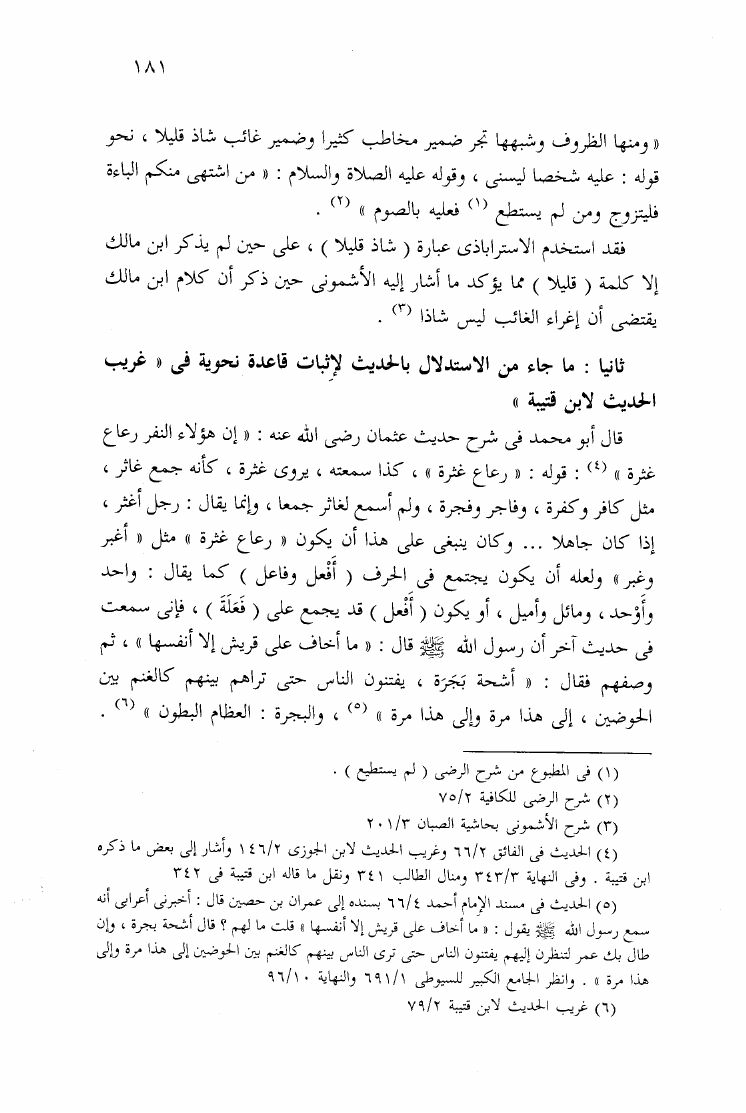 ١٨١
« ومنها الظروف وشبهها تجر ضمير مخاطب كثيرا وضمير غائب شاذ قليلا ، نحو
قوله : عليه شخصا ليسنى ، وقوله عليه الصلاة والسلام : « من اشتهى منكم الباءة
فليتزوج ومن لم يستطع (١) فعليه بالصوم » (٢) .
فقد استخدم الاستراباذى عبارة ( شاذ قليلا ) ، على حين لم يذكر ابن مالك
إلا كلمة ( قليلا ) مما يؤكد ما أشار إليه الأشمونى حين ذكر أن كلام ابن مالك
يقتضى أن إغراء الغائب ليس شاذا (٣) .
ثانيا : ما جاء من الاستدلال بالحديث لإثبات قاعدة نحوية فى « غريب
الحديث لابن قتيبة »
قال أبو محمد فى شرح حديث عثمان رضى الله عنه : « إن هؤلاء النفر رعاع
غثرة » (٤) : قوله : « رعاع غثرة » ، كذا سمعته ، يروى غثرة ، كأنه جمع غاثر ،
مثل كافر وكفرة ، وفاجر وفجرة ، ولم أسمع لغاثر جمعا ، وإنما يقال : رجل أغثر ،
إذا كان جاهلا ... وكان ينبغى على هذا أن يكون « رعاع غثرة » مثل « أغبر
وغبر » ولعله أن يكون يجتمع فى الحرف ( أَفْعل وفاعل ) كما يقال : واحد
وأَوْحد ، ومائل وأميل ، أو يكون ( أَفْعل ) قد يجمع على ( فَعَلَة ) ، فإنى سمعت
فى حديث آخر أن رسول الله ﷺ قال : « ما أخاف على قريش إلا أنفسها » ، ثم
وصفهم فقال : « أشحة بَجَرَة ، يفتنون الناس حتى تراهم بينهم كالغنم بين
الحوضين ، إلى هذا مرة وإلى هذا مرة » (٥) ، والبجرة : العظام البطون » (٦) .
(١) فى المطبوع من شرح الرضى ( لم يستطيع ) .
(٢) شرح الرضى للكافية ٧٥/٢
(٣) شرح الأشمونى بحاشية الصبان ٢٠١/٣
(٤) الحديث فى الفائق ٦٦/٢ وغريب الحديث لابن الجوزى ١٤٦/٢ وأشار إلى بعض ما ذكره
ابن قتيبة . وفى النهاية ٣٤٣/٣ ومنال الطالب ٣٤١ ونقل ما قاله ابن قتيبة فى ٣٤٢
(٥) الحديث فى مسند الإمام أحمد ٦٦/٤ بسنده إلى عمران بن حصين قال : أخبرنى أعرابى أنه
سمع رسول الله ﷺ يقول : « ما أخاف على قريش إلا أنفسها » قلت ما لهم ؟ قال أشحة بجرة ، وإن
طال بك عمر لتنظرن إليهم يفتنون الناس حتى ترى الناس بينهم كالغنم بين الحوضين إلى هذا مرة وإلى
هذا مرة » . وانظر الجامع الكبير للسيوطى ٦٩١/١ والنهاية ٩٦/١٠
(٦) غريب الحديث لابن قتيبة ٧٩/٢